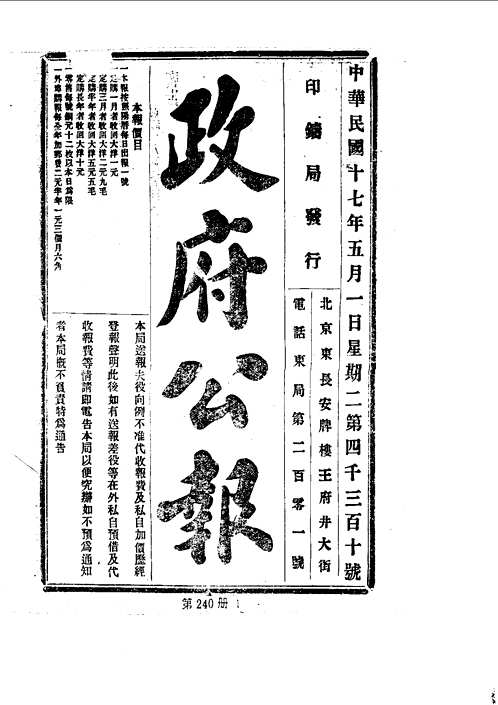 中華民國十七年五月一日星期二第四千三百十號
印鑄局發行
北京東長安牌樓王府井大街
電話東局第二百零一號
政府公報
本報價目
一本報按照陽曆每日出報一號
定購一月者收回大洋一元
定購三月者收回大洋二元九毛
定購半年者收回大洋五元五毛
定購長年者收回大洋十元
零售每號銅元十二枚以本日為限
一外埠購報每全年加郵費二元半年一元三個月六角
本局送報夫役向例不准代收報費及私自加價歷經
登報聲明此後如有送報差役等在外私自預借及代
收報費等情請即電告本局以便究辦如不預為通知
者本局概不負責特為通告
第240册 1